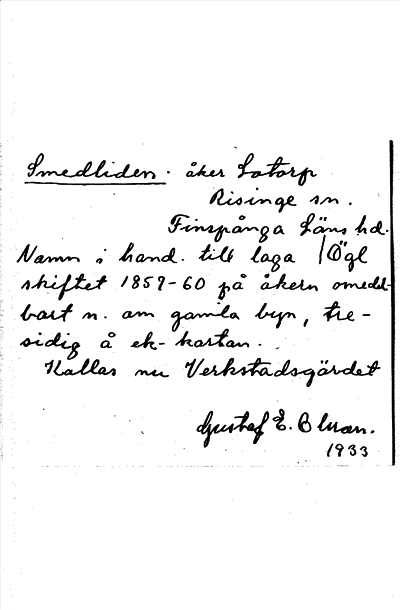 Smedliden. åker Lotorp
Risinge sn.
Finspånga Läns hd.
Namn i hand. till laga / Ögl
skiftet 1859-60 på åkern omedel-
bart n. om gamla byn, tre-
sidig å ek-kartan.
Kallas nu Verkstadsgärdet
Gustaf E. Blman.
1933